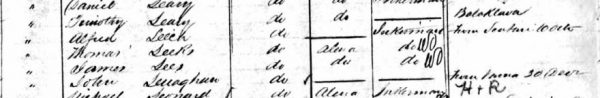 " Daniel Leary do do Inkerman
" Timothy Leary do do Balaklava
" Alfred Leech do Inkerman from Scutari 10 Octr
" Thomas Leeks do Alma do WO
" James Lees do do do WO
" John Lenaghan do from Varna 20 Decr
" Michael Leonard do Alma Inkerman H + R